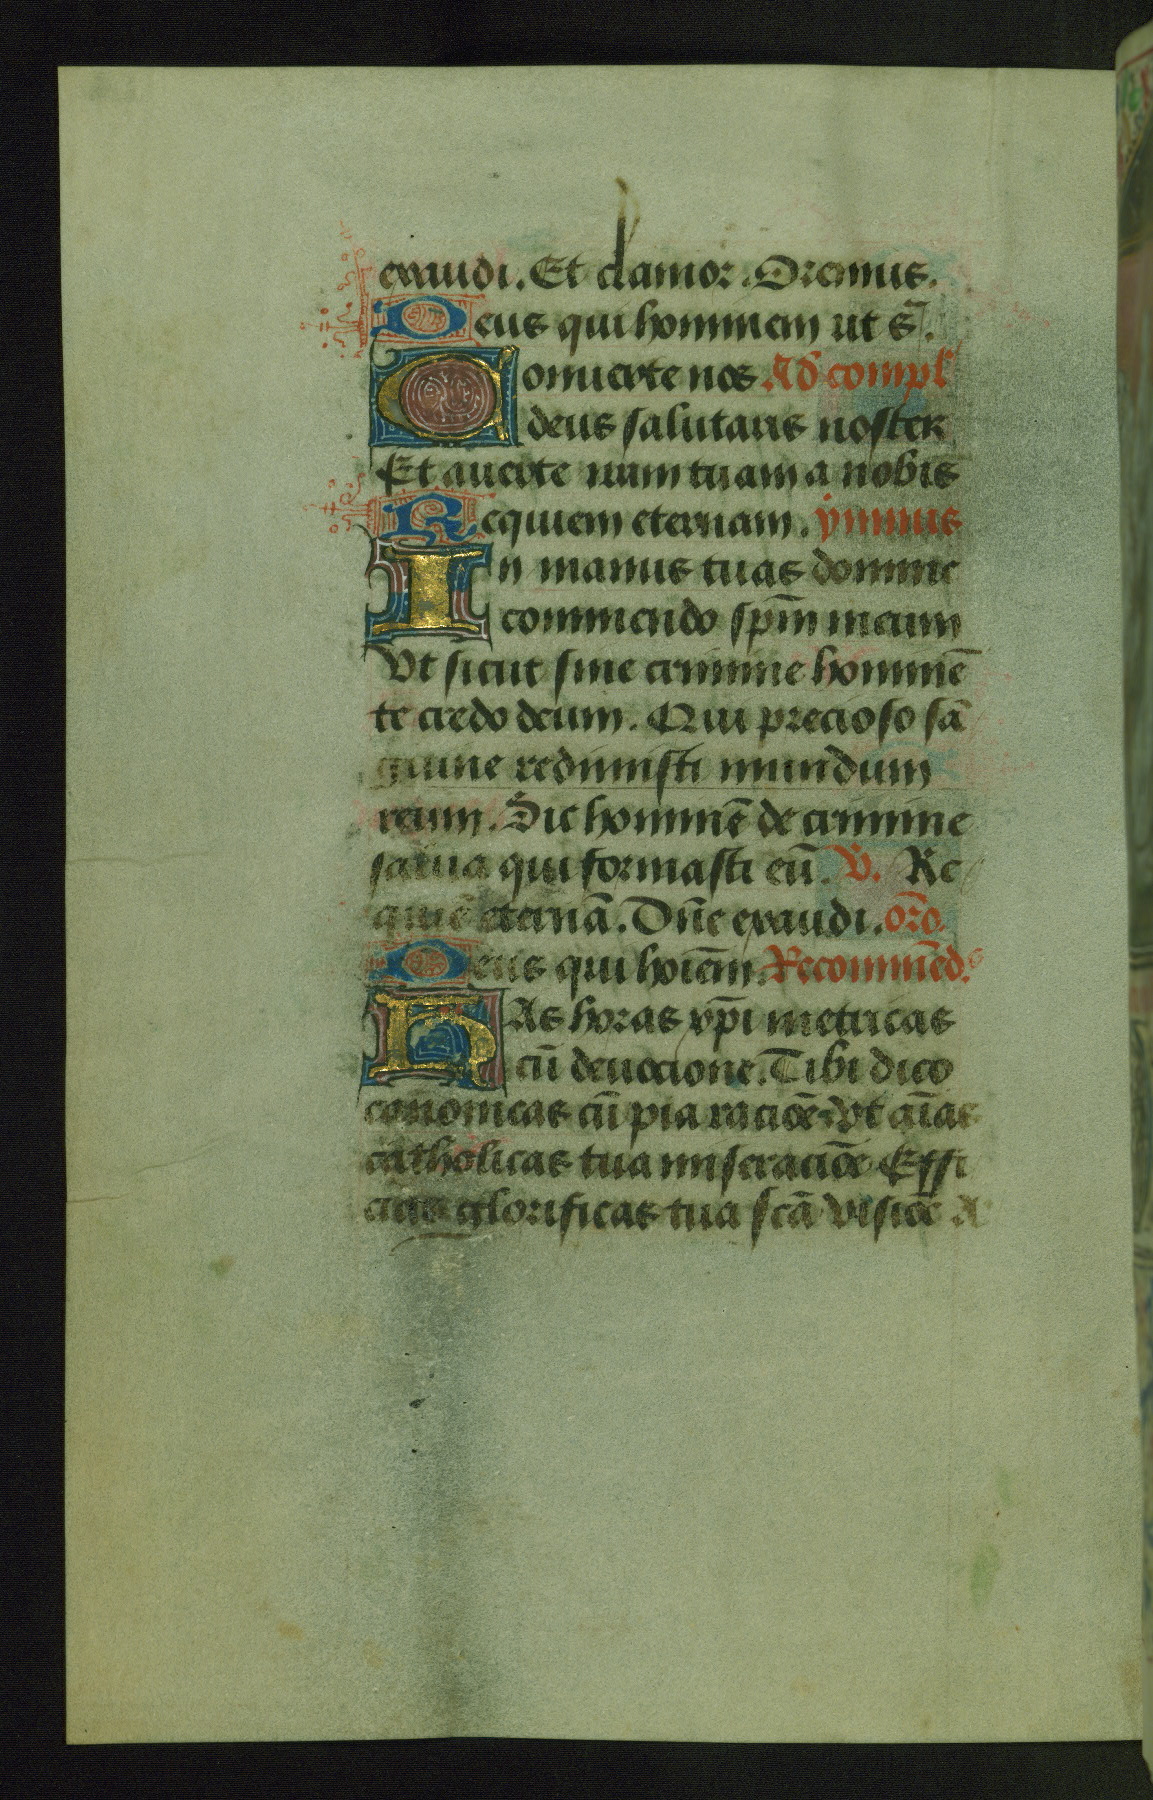 exaudi. Et clamor. Oremus.
Deus qui hominem ut s̄.
Conuerte nos Ad compl̄
deus salutaris noster
Et auerte iram tuam a nobis
Requiem eternam. ymnus
In manus tuas domine
commendo sp̄m meum
Vt sicut sine crimine hominē
te credo deum. Qui precioso sā
guine redimisti mundum
reum. Sic hominē de crimine
salua qui formasti eū. V. Re
quiē eternā. Dn̄e exaudi. or̄o.
Deus qui hoiēm. Recommēd.
HAs horas xp̄i metricas
cū deuocione. Tibi dico
canonicas cū pia raciōe vt
catholicas tua miseraciōe Effi
glorificas tua sc̄a visiōe A